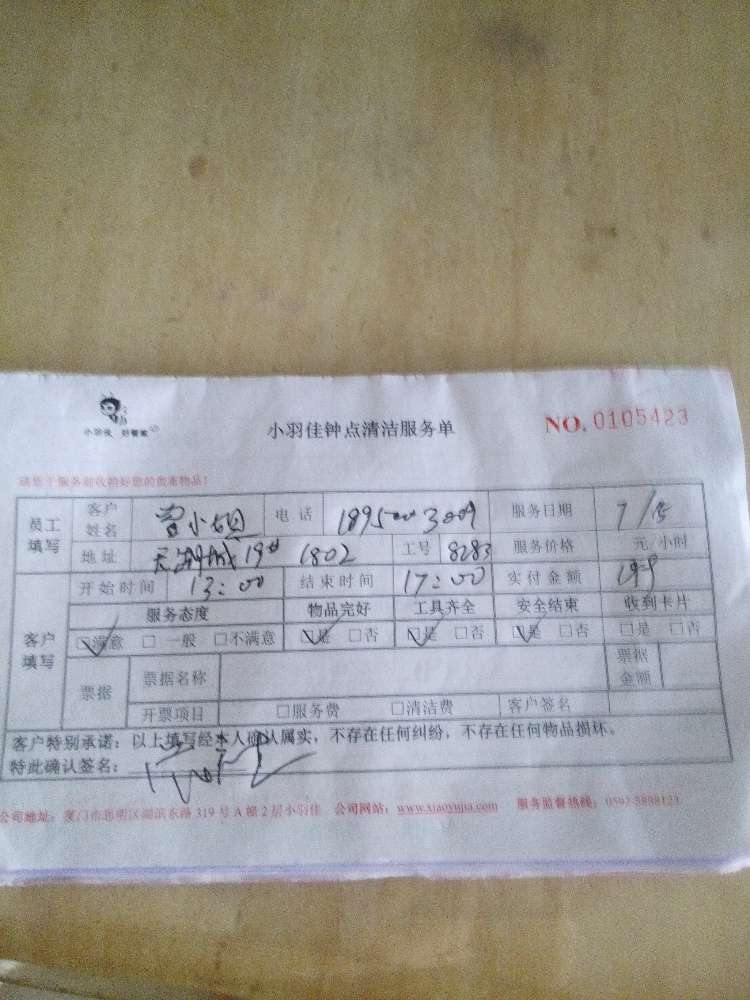 小羽佳 好管家
小羽佳钟点清洁服务单
NO. 0105423
请您于服务前收拾好您的贵重物品！
员工填写 客户姓名 曾小姐 电话 服务日期
地址 1802 工号 8283 服务价格 元/小时
客户填写 开始时间 13:00 结束时间 17:00 实付金额
服务态度 物品完好 工具齐全 安全结束 收到卡片
☑满意 □一般 □不满意 ☑是 □否 ☑是 □否 ☑是 □否 □是 □否
票据 票据名称 票据金额
开票项目 □服务费 □清洁费 客户签名
客户特别承诺：以上填写经本人确认属实，不存在任何纠纷，不存在任何物品损坏。
特此确认签名：
公司地址：厦门市思明区湖滨东路319号A幢2层小羽佳 公司网站：www.xiaoyujia.com 服务监督热线：0592-5838123